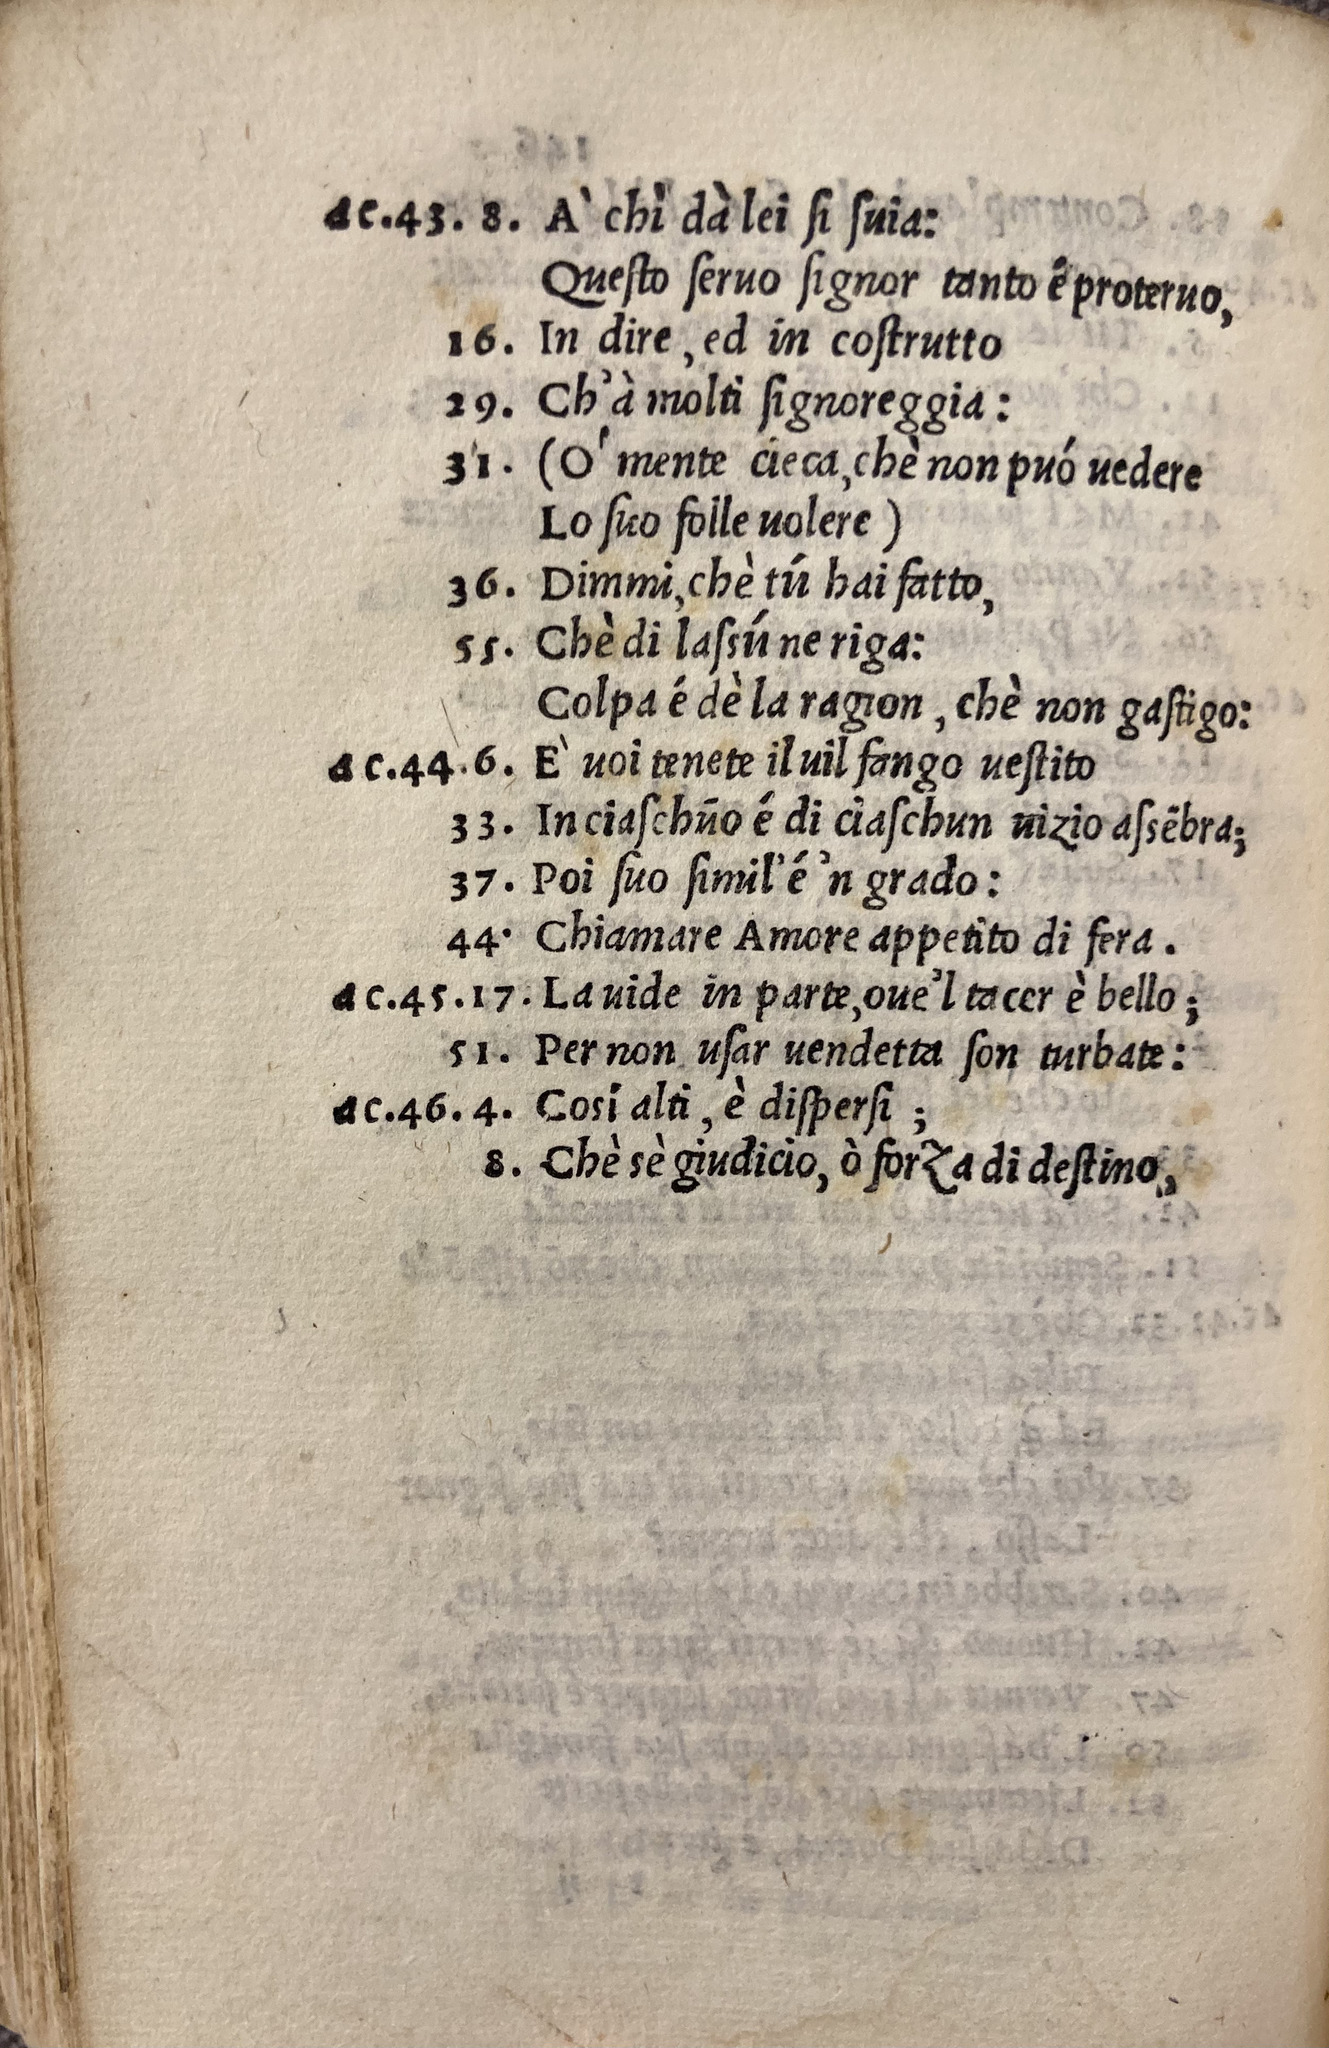 ac.43. 8. A` chì dà lei ſi ſuia:
Queſto ſeruo ſignor tanto é proteruo,
16. In dire, ed in coſtrutto
29. Ch'à molti ſignoreggia:
31. (O' mente cieca, chè non puó uedere
Lo ſuo folle uolere)
36. Dimmi, chè tú hai fatto,
55. Chè di laſsú ne riga:
Colpa é dè la ragion, chè non gaſtigo:
ac.44.6. E` uoi tenete il uil fango ueſtito
33. In ciaſchūo é di ciaſchun uizio aſsēbra;
37. Poi ſuo ſimil'é 'n grado:
44. Chiamare Amore appetito di fera.
ac.45.17. La uide in parte, oue'l tacer è bello;
51. Per non uſar uendetta ſon turbate:
ac.46.4. Cosí alti, è diſperſi;
8. Chè sè giudicio, ò forza di deſtino,